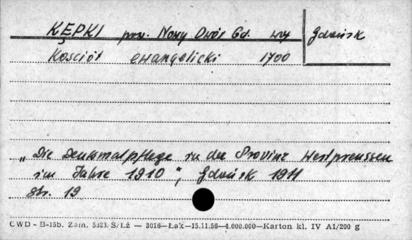 KĘPKI pow. Nowy Dwór Gd. woj Gdańsk
Kościół ewangelicki 1700
„Die Denkmalpflege in der Provinz Westpreussen
im Jahre 1910", Gdańsk 1911
str. 19
CWD - B-15b. Zam. 5323. S/Łż — 3016—Łak—15.11.56—4.000.000—Karton kl. IV A1/200 g